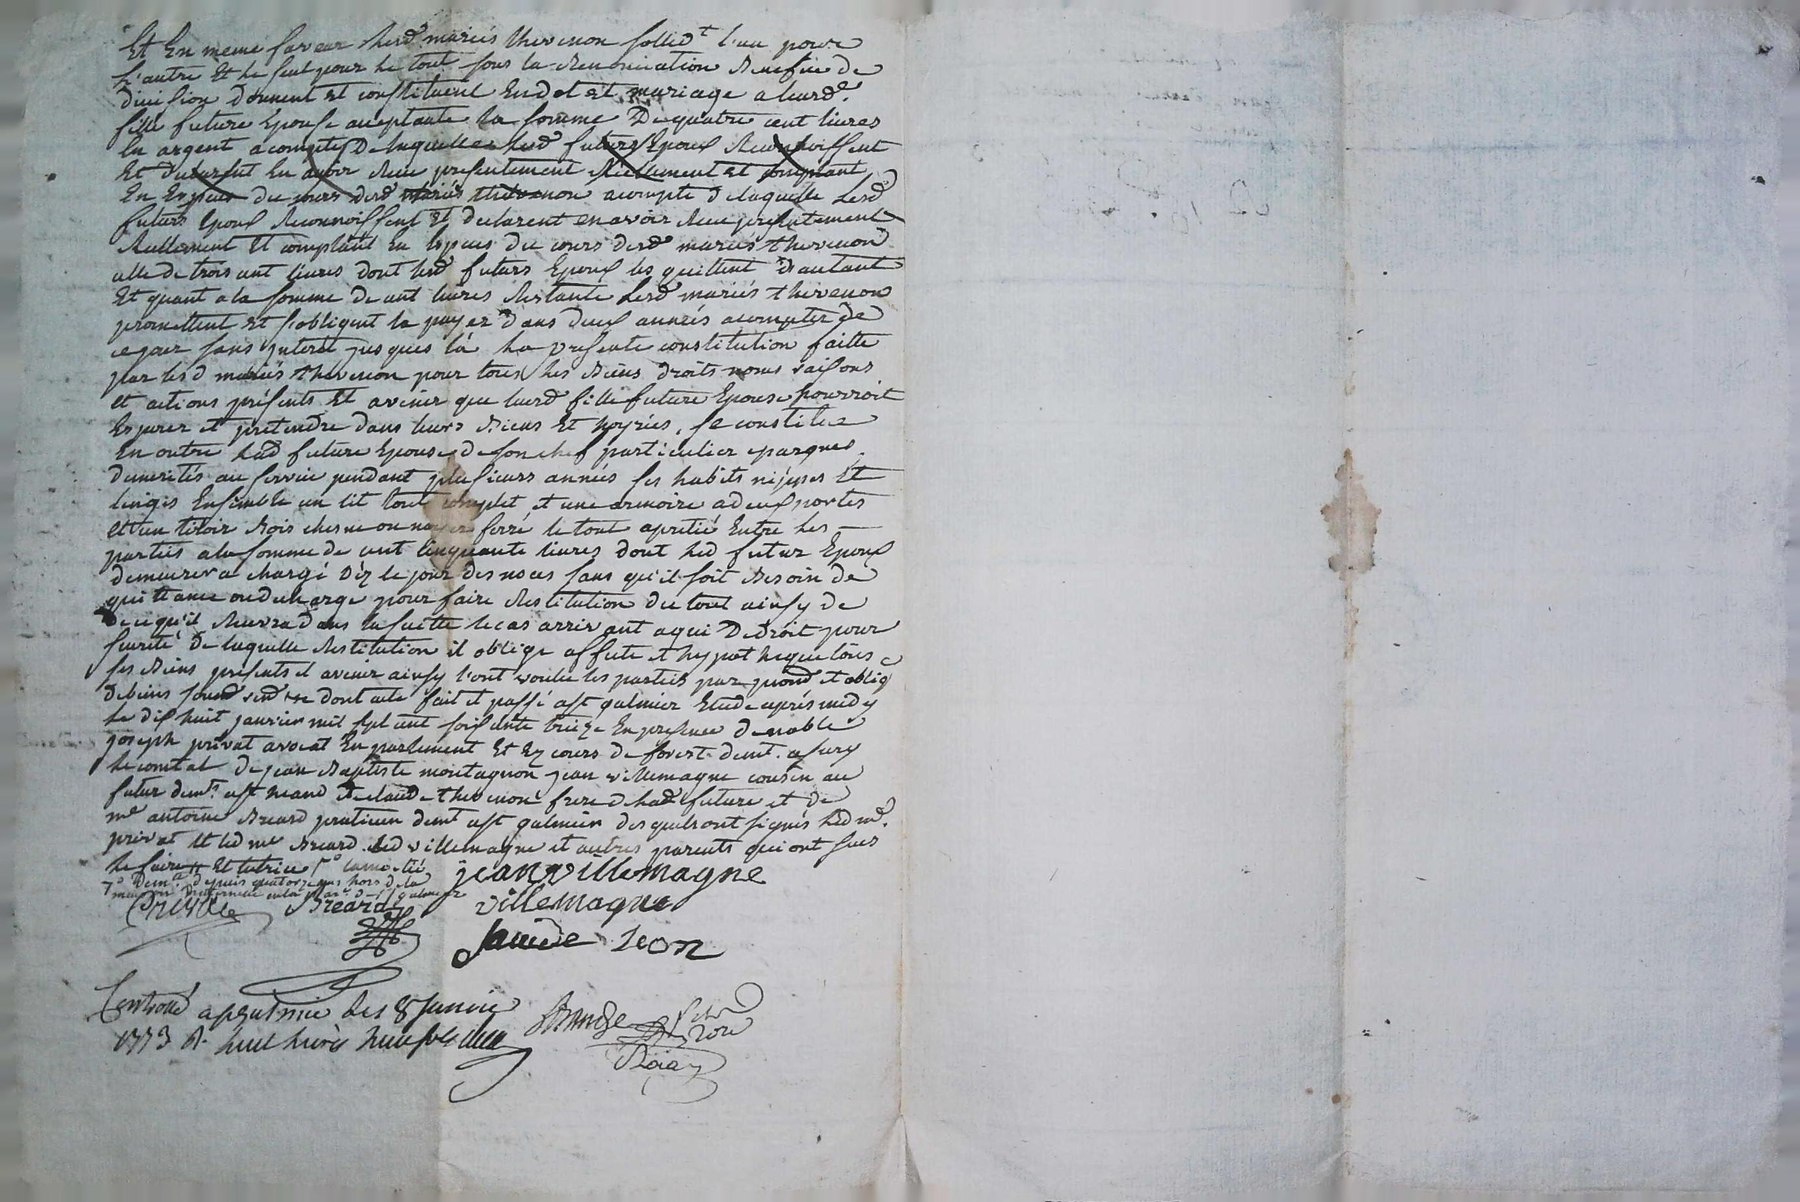 Et En meme faveur lesd mariés thevenon sollidt l'un pour
L'autre Et le seul pour le tout sous la Renonciation Benefice de
Division donnent et constituent En dot et mariage a leurde
fille future Epouse aceptante la somme De quatre cent livres
En argent acompte De laquelle lesd futurs Epoux Reconnoissent
Et declarent En avoir Receu presentement Reellement et comptant
En Especes du cours desd mariés thevenon acompte de laquelle Lesd
futurs Epoux Reconnoissent Et declarent en avoir Receu presentement
Reellement Et comptant En Especes du cours desd mariés thevenon
celle de trois cent livres dont lesd futurs Epoux les quittent d'autant
Et quant a la somme de cent livres Restante Lesd mariés thevenon
promettent et s'obligent la payer dans deux années acompter de
ce jour sans jnteret jusques la La presente constitution faitte
par lesd mariés thevenon pour tous les Biens droits noms raisons
et actions présents Et avenir que leurd fille future Epouse pourroit
Esperer et pretendre dans leurs Biens Et hoyries, se constitue
En outre lad future Epouse de son chef particulier eparques
dumerités au service pendant plusieurs années ses habits nipes Et
linges Ensemble un lit tout complet et une armoire a deux portes
et un tiroir Bois chesne ou noyer ferré le tout apretié Entre les
parties a la somme de cent cinquante livres dont led futur Epoux
demeurera chargé Déz le jour des noces sans qu'il soit Besoin de
quittance ou decharge pour faire Restitution du tout ainsy de
Ce qu'il Recevra dans la suitte le cas arrivant a qui De droit pour
sureté De laquelle Restitution il oblige affecte et hypotheque tous
ses Biens presents et avenir ainsy l'ont voulu les parties par promd et oblig
de biens dont acte fait et passé a st galmier Etude aprés midy
le dix huit janvier mil sept cent soixante treize En presence de noble
joseph privat avocat En parlement Et Ez cours de forest demt a sury
le comtal de jean Baptiste montagnon jean villemagne cousin au
futur demt a st heand de claude thevenon frere de lad future et de
me antoine Breard praticien demt a st galmier desquels ont signés led me
privat Et led me Breard led villemagne et autres parents qui ont sceu
le faire
jean villemagne
Breard
villemagne
Controllé a st galmier les 8 janvier
1773 R. huit livres neuf sols